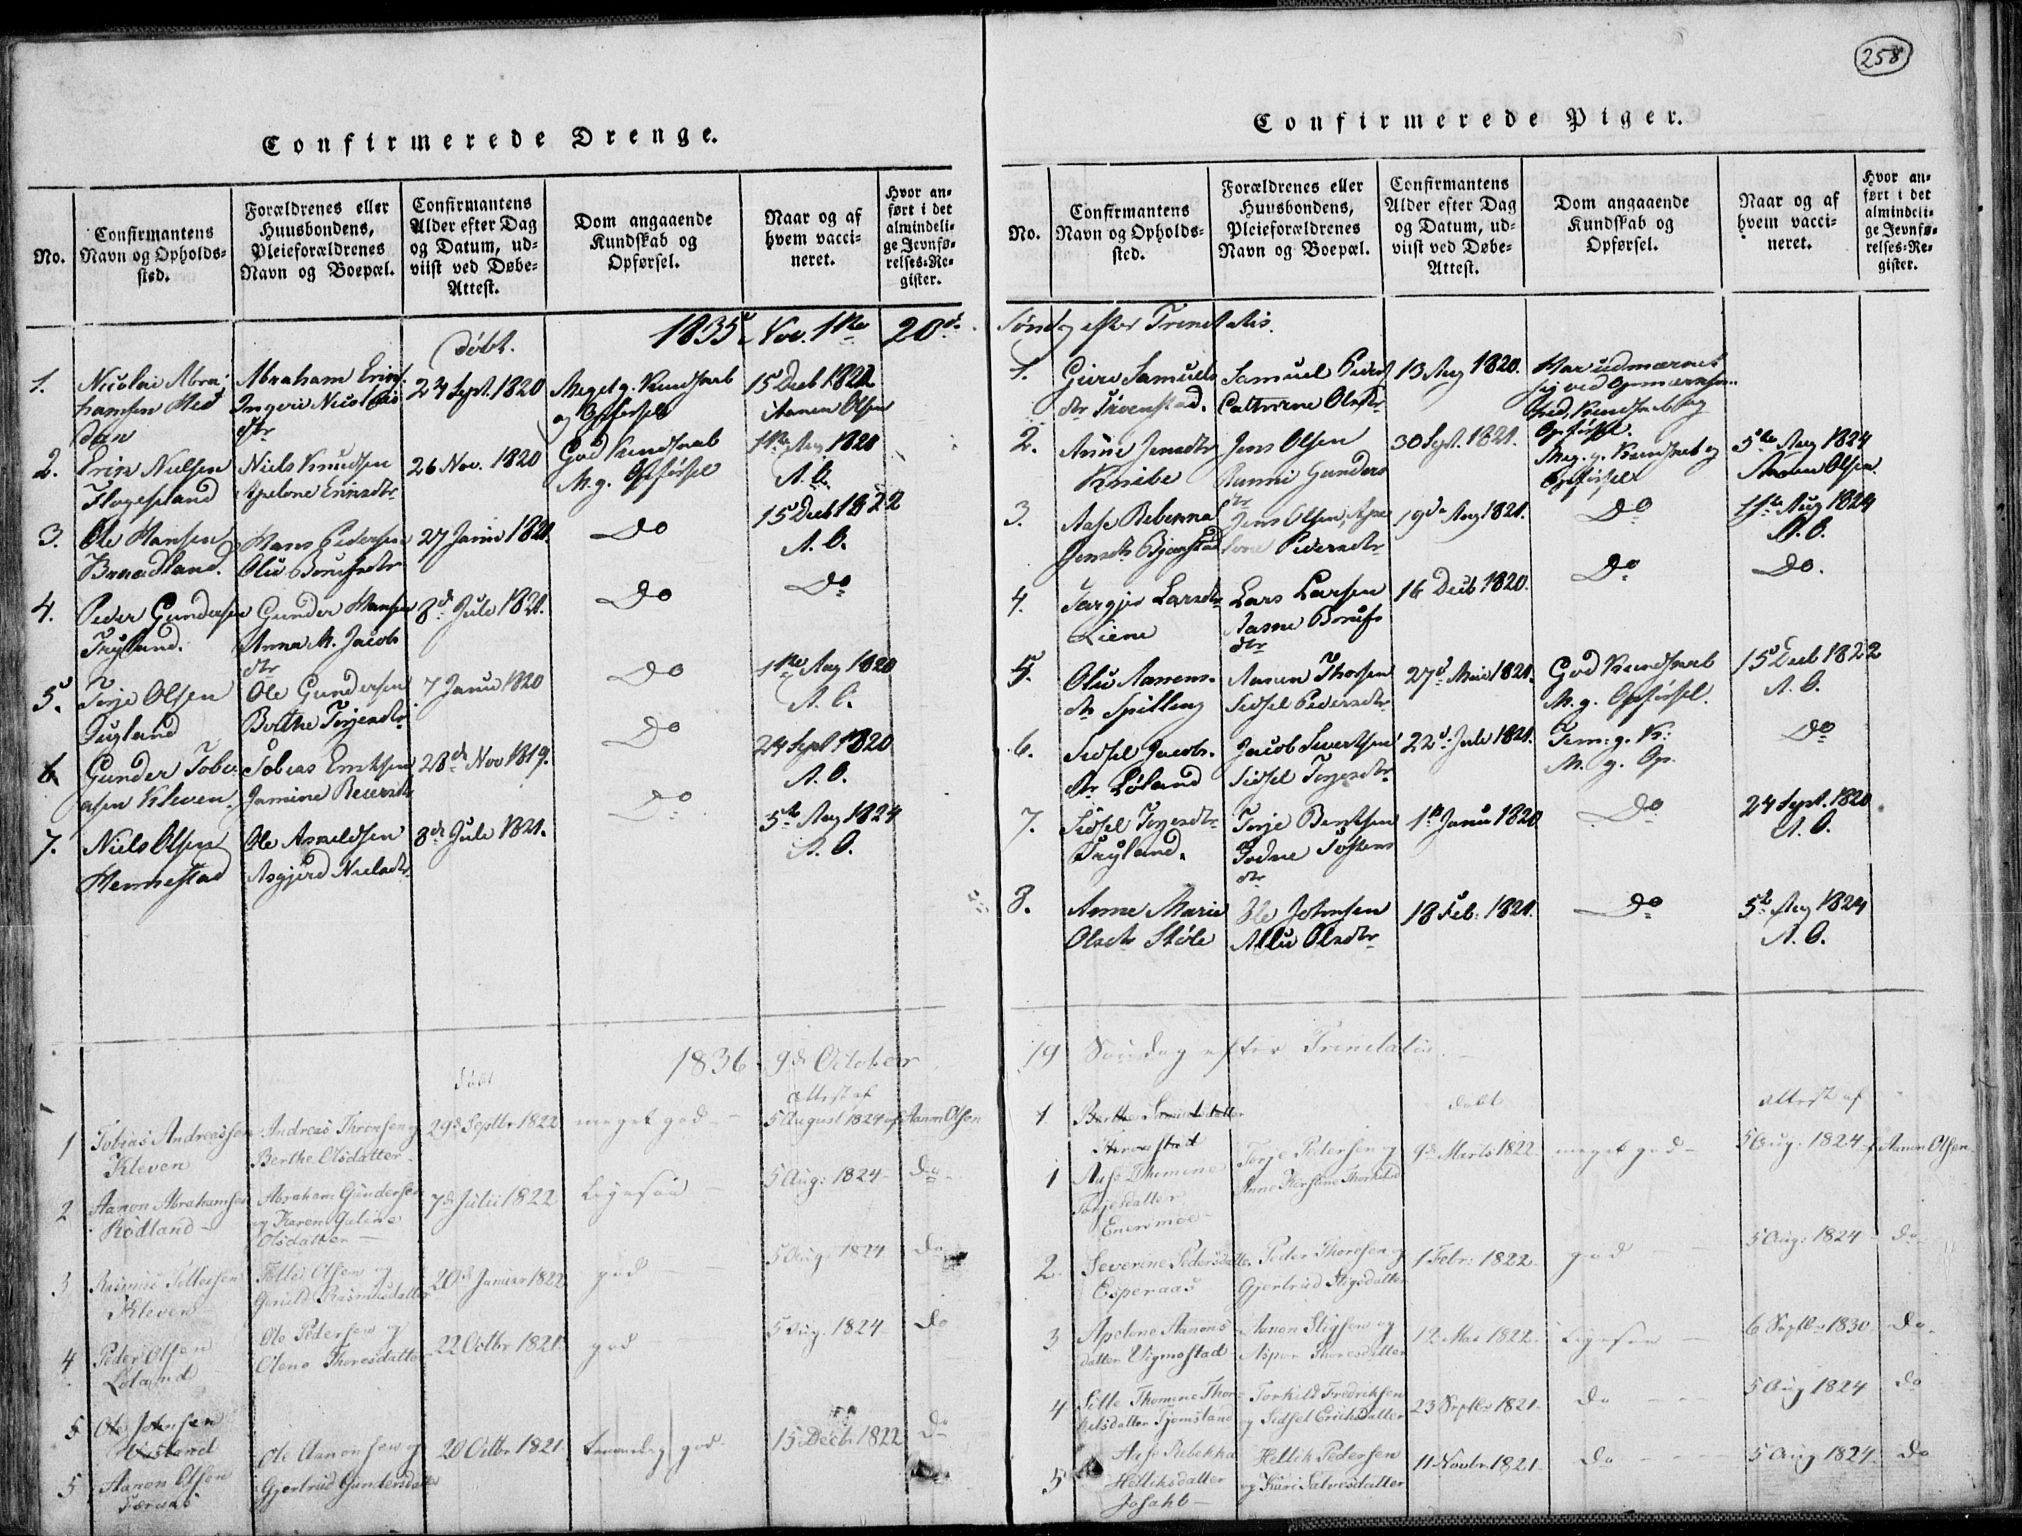 258
Confirmerede Drenge.
No.
Confirmantens
Navn og Opholds-
sted.
Forældrenes eller
Huusbondens,
Pleieforældrenes
Navn og Boepæl.
Confirmantens
Alder efter Dag
og Datum, ud-
viist ved Døbe-
Attest.
Dom angaaende
Kundskab og
Opførsel.
Naar og af
hvem vacci-
neret.
Hvor an-
ført i det
almindeli-
ge Jevnfø-
relses-Re-
gister.
døbt.
1835 Nov. 1ste 20de
1.
Nicolai Abra-
hamsen
Abraham
Ingeri Nicol
dtr
24 Sept. 1820
Meget g. Kundskab
og Opførsel
15 Decb 1822
Aanen Olsen
2.
Erik Nielsen
Flogesland
Niels Knudsen
Apelone Eriksdtr
26 Nov. 1820
God Kundskab
M. g. Opførsel
A. O.
3.
Ole Hansen
Hans Pedersen
27 Janui 1821.
Do
15 Decb 1822
A. O.
4.
Peder Gundersen
Trÿland.
Gunder Hansen
Anna M. Jacobs
dtr
8de Jule 1821.
Do
Do
5.
Torje Olsen
Ole Gundersen
Berthe Torjesdtr
7 Janui 1820
Do
1ste Aug 1820
A. O.
6
Gunder Tobi-
asen Kleven.
Tobias Eriksen
28de Nov 1819.
Do
24 Sept 1820
A. O.
7.
Niels Olsen
Hennestad
Ole
Asgjerd Nielsdtr
8de Jule 1821.
Do
5te Aug 1824
A. O.
1836 9de October
døbt
attest af
1
Tobias Andreassen
Kleven
Andreas Thronsen og
Berthe Olsdatter
29de Septbr 1822
meget god
5 August 1824 af Aanon Olsen
2
Aanon Abrahamsen
Rødland
Abraham Gundersen
og Karen Guline
Olsdatter
7de Julii 1822
Ligesaa
5 Aug: 1824
Do
3
Rasmus Tellefsen
Kleven
Tellef Olsen og
Rasmusdatter
20de Januar 1822
god
5 Aug: 1824
Do
4
Peder Olsen
Løland
Ole Pedersen og
Olene Thoresdatter
22 Octbr 1821
god
5 Aug. 1824
Do
5
Ole Johnsen
5
Aanon Olsen
Ole Aanonsen og
Gjertrud Gundersdatter
20 Octbr 1821
temmelig god
15 Decbr 1822
Do
Confirmerede Piger.
No.
Confirmantens
Navn og Opholds-
sted.
Forældrenes eller
Huusbondens,
Pleieforældrenes
Navn og Boepæl.
Confirmantens
Alder efter Dag
og Datum, ud-
viist ved Døbe-
Attest.
Dom angaaende
Kundskab og
Opførsel.
Naar og af
hvem vacci-
neret.
Hvor an-
ført i det
almindeli-
ge Jevnfø-
relses-Re-
gister.
Søndag efter Trinitatis.
1.
Giere Samuels
dtr
Samuel Peders
Cathrine Olsdtr
13 Aug 1820.
Har udmærket
sig ved
Kundskab og
Opførsel.
2.
Anne Jensdtr
Knibe
Jens Olsen
Gunders
dtr
30 Sept. 1821.
Meg. g. Kundskab og
Opførsel
5te Aug 1824
Aanen Olsen.
3.
Aase Rebekka
Jensdtr
Jens Olsen,
Pedersdtr
19de Aug 1821.
Do
Aug 1824
A. O.
4.
Targjer Larsdtr
Liene
Lars Larsen
Aasne
dtr
16 Decb 1820.
Do
Do.
5.
Olu Aanens-
dtr Spilling
Aanen Thorsen
Sidsel Pedersdtr
27de Mai 1821.
God Kundskab
M. g. Opførsel.
15 Decb 1822
A. O.
6.
Sidsel Jacobs-
dtr Løland
Jacob Sivertsen
Sidsel Torjesdtr
22de Jule 1821.
Tem: g. K:
M. g. Op.
Do
7.
Sidsel Torjesdtr
Trÿland.
Torje Bentsen
dtr
1ste Janu 1820
Do
24 Sept. 1820
A. O.
8.
Anne Marie
Olsdtr Støle
Ole Johnsen
Olsdtr
18 Feb: 1821.
Do
5te Aug 1824
A. O.
19 Søndag efter Trinitatis.
døbt
attest af
1
Berthe
1
Aase Thomine
Torjesdatter
Torje Pedersen og
Anne Kirstine
9de Marts 1822
meget god
5 Aug: 1824 af Aanon Olsen
2
Severine Pedersdatter
Esperaas
Peder Thoresen og
Gjertrud Stigsdatter
1 Febr: 1822
god
5 Aug: 1824
Do
3
Apelone Aanons
datter Vigmostad
Aanon Stigsen og
Thoresdatter
12 Mai 1822
Ligesaa
6 Septbr 1830
Do
4
Thomine Thor
kelsdatter Fjomsland
Torkild Fredriksen
og Sidsel Eriksdatter
23 Septbr 1821
Do
5 Aug 1824
Do
5
Aase Rebekka
Helliksdatter
Hellik Pedersen
og Guri Salvesdatter
11 Novbr 1821
Do
5 Aug 1824
Do